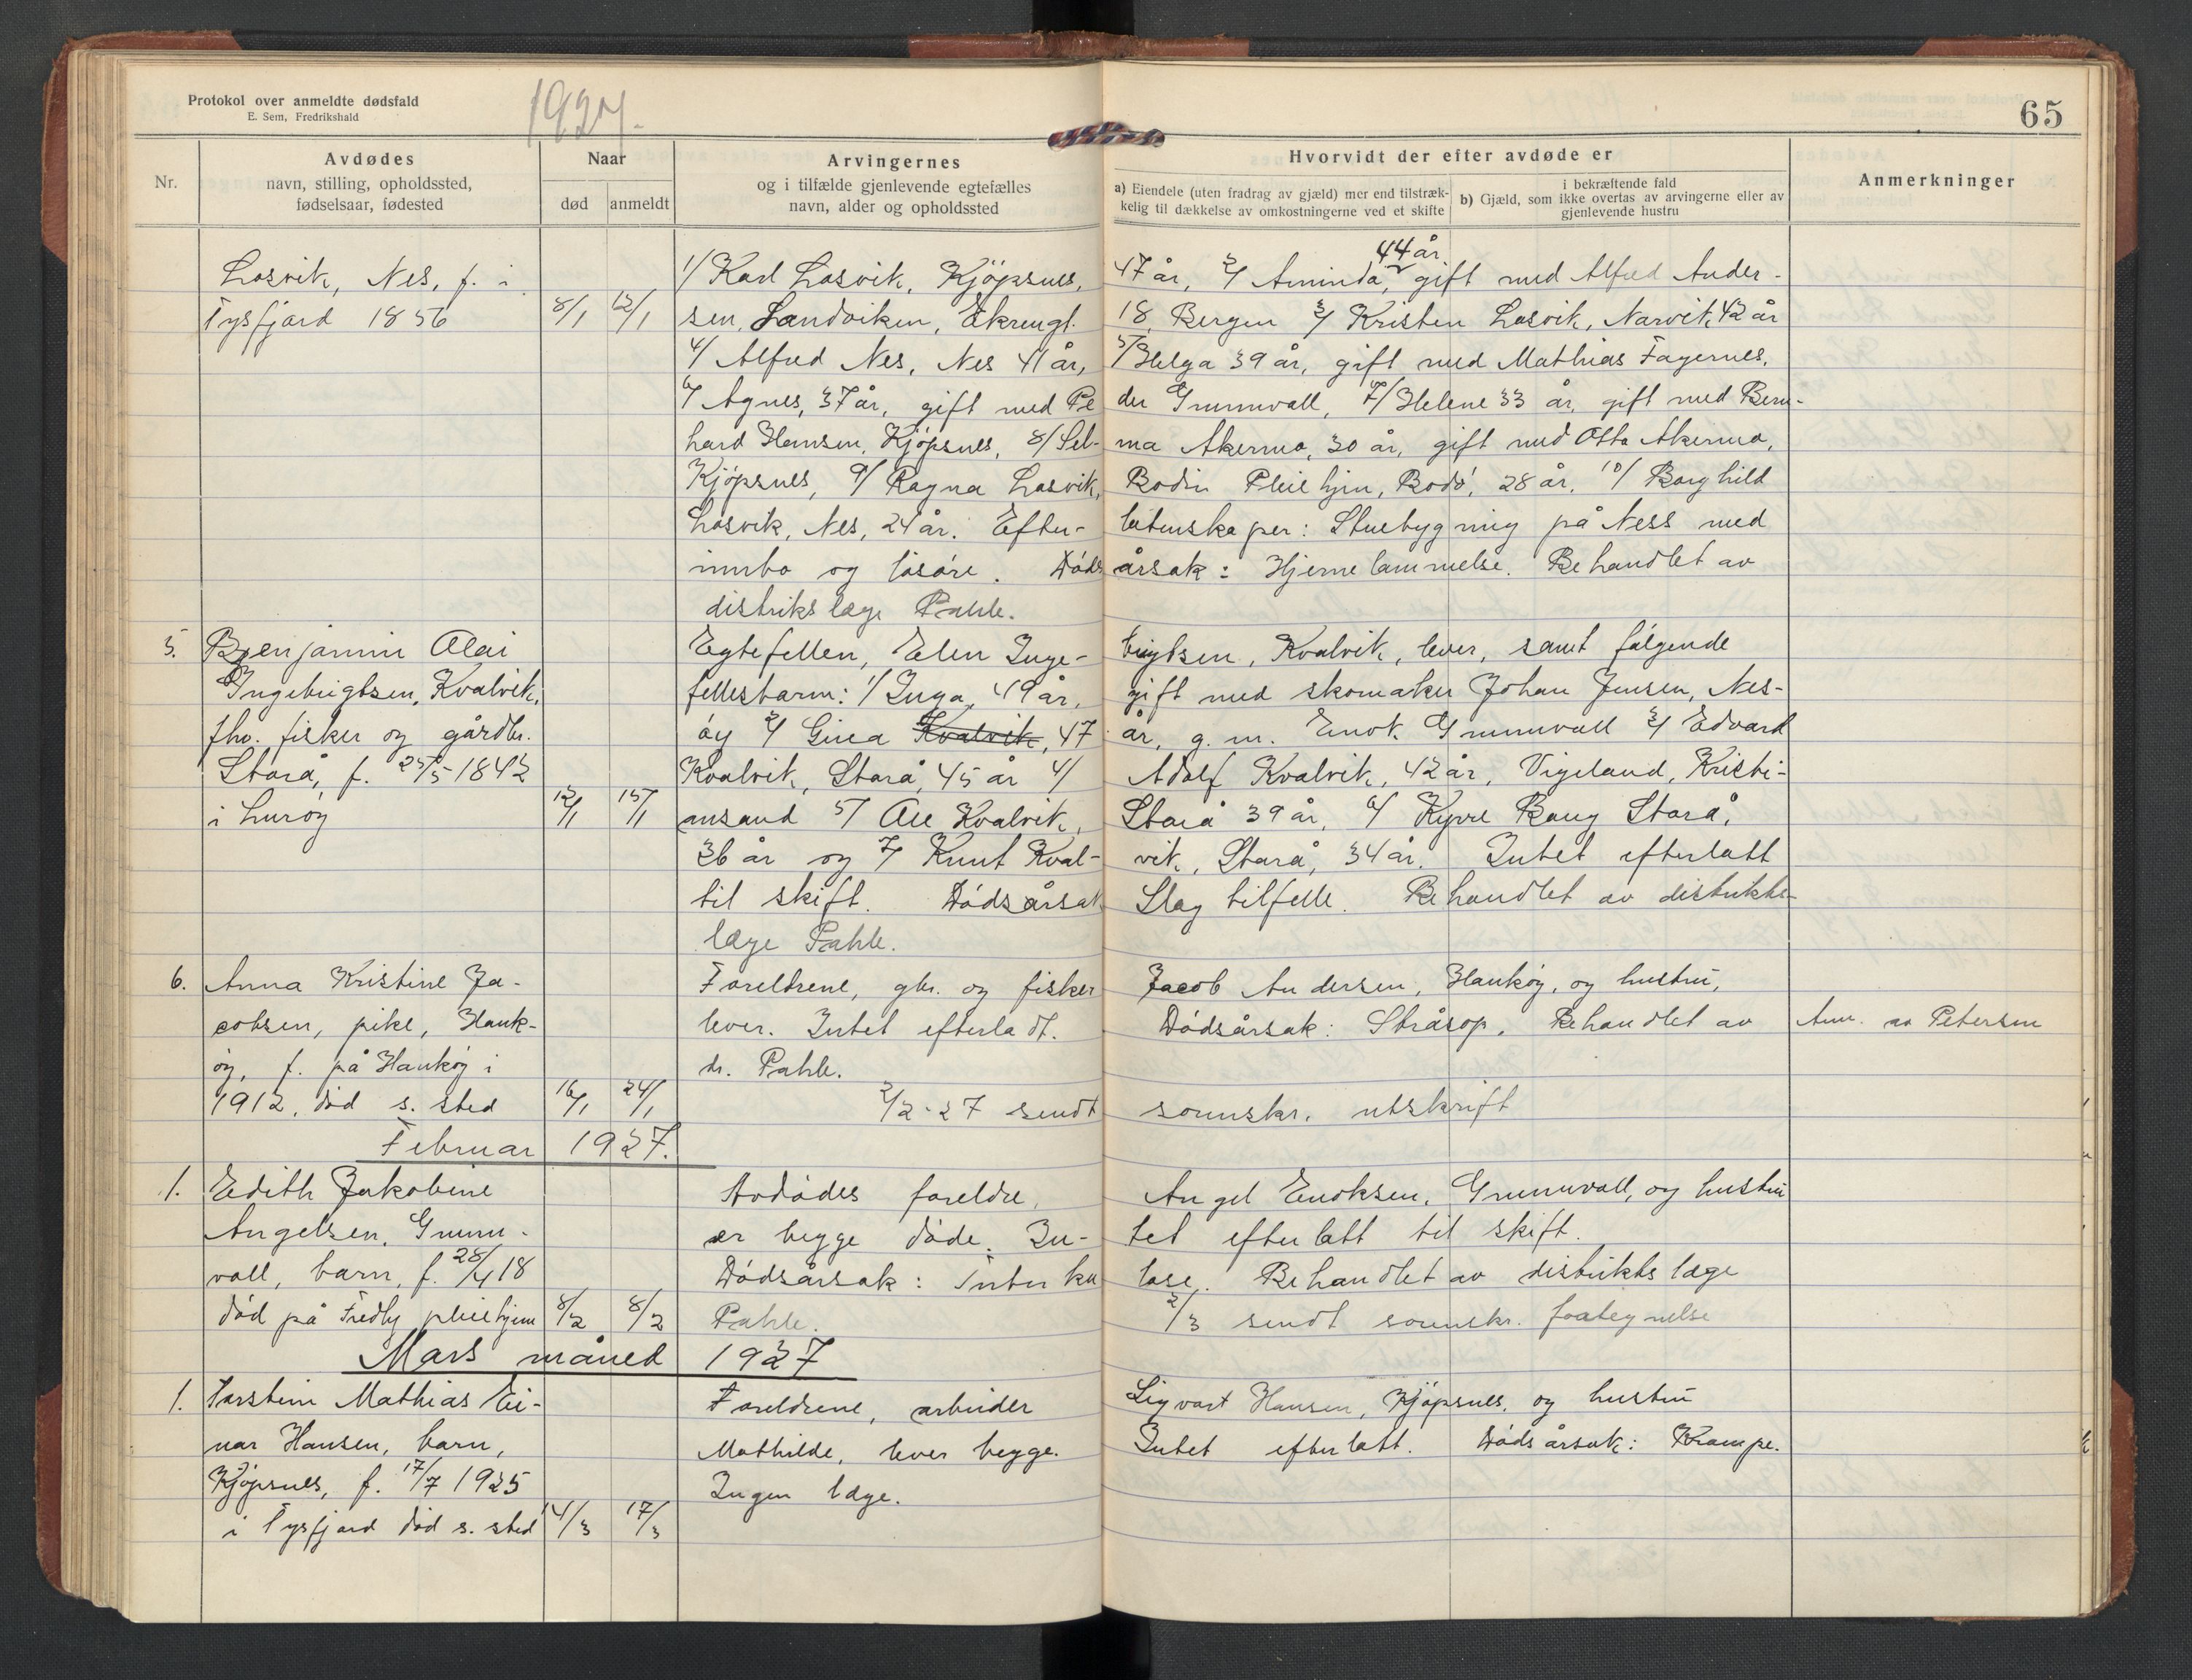 Protokol over anmeldte dødsfald
E. Sem, Fredrikshald
1927.
65
Nr.
Avdødes
navn, stilling, opholdssted,
fødselsaar, fødested
Naar
død
anmeldt
Arvingernes
og i tilfælde gjenlevende egtefælles
navn, alder og opholdssted
Hvorvidt der efter avdøde er
a) Eiendele (uten fradrag av gjæld) mer end tilstræk-
kelig til dækkelse av omkostningerne ved et skifte
i bekræftende fald
b) Gjæld, som ikke overtas av arvingerne eller av
gjenlevende hustru
Anmerkninger
Losvik, Nes, f. i
Tysfjord 1856 8/1 12/1
1/ Karl Losvik, Kjöpsnes, 47 år, 2/ Aminda, 44 år, gift med Alfred Ander-
sen, Sandviken, Ekrengt. 18, Bergen 3/ Kristen Losvik, Narvik 42 år
4/ Alfred Nes, Nes 41 år, 5/ Helga 39 år, gift med Mathias Fagernes,
6/ Agnes, 37 år, gift med Pe der Grunnvall, 7/ Helene 33 år, gift med Bern-
hard Hansen, Kjöpsnes, 8/ Sel- ma Akermo, 30 år, gift med Otto Akermo,
Kjöpsnes, 9/ Ragna Losvik, Bodin Pleiehjm, Bodö, 28 år, 10/ Borghild
Losvik, Nes, 24 år. Efter- latenskaper: Stuebygning på Ness med
innbo og lösöre. Döds årsak: Hjernelammelse. Behandlet av
distrikslæge Pahle.
5. Benjamin Olai
Ingebrigtsen, Kvalvik,
fhv. fisker og gårdbr.
Storå, f. 25/5-1842
i Luröy 12/1 15/1
Egtefellen, Elen Inge- brigtsen, Kvalvik, lever, samt fölgende
fellesbarn: 1/ Inga, 49 år, gift med skomaker Johan Jensen, Nes-
öy 2/ Gina Kvalvik, 47 år, g. m. Enok Grunnvall 3/ Edvard
Kvalvik, Storå, 45 år 4/ Adolf Kvalvik, 42 år, Vigeland, Kristi-
ansand 5/ Ole Kvalvik, Storå 39 år, 6/ Kyvre Bang Storå,
36 år og 7/ Knut Kval- vik, Storå, 34 år. Intet efterlatt
til skift. Dödsårsak Slag tilfelle. Behandlet av distrikts-
læge Pahle.
6. Anna Kristine Ja-
cobsen, pike, Hauk-
öy, f. på Hauköy i
1912, död s. sted 16/1 24/1
Foreldrene, gbr. og fisker Jacob Andersen, Hauköy, og hustru,
lever. Intet efterladt. Dödsårsak: Stråsop. Behandlet av
dr. Pahle.
Anm. av Petersen
2/2-27 sendt sorenskr. utskrift
Februar 1927.
1. Edith Jakobine
Angelsen, Grunn-
vall, barn, f. 28/4 18
död på Fredly pleiehjem 8/2 8/2
Avdödes foreldre, Angel Enoksen, Grunnvall, og hustru
er begge döde. In- tet efterlatt til skift.
Dödsårsak: Tuberku lose. Behandlet av distrikts læge
Pahle. 2/3 sendt sorenskr. fortegnelse
Mars måned 1927
1. Torstein Mathias Ei-
nar Hansen, barn,
Kjöpsnes, f. 17/7 1925
i Tysfjord död s. sted 14/3 17/3
Foreldrene, arbeider Sigvart Hansen, Kjöpsnes, og hustru
Mathilde, lever begge. Intet efterlatt. Dödsårsak: Krampe.
Ingen læge.